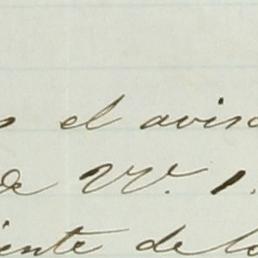 el avis
de VV. 1.
iente de lo